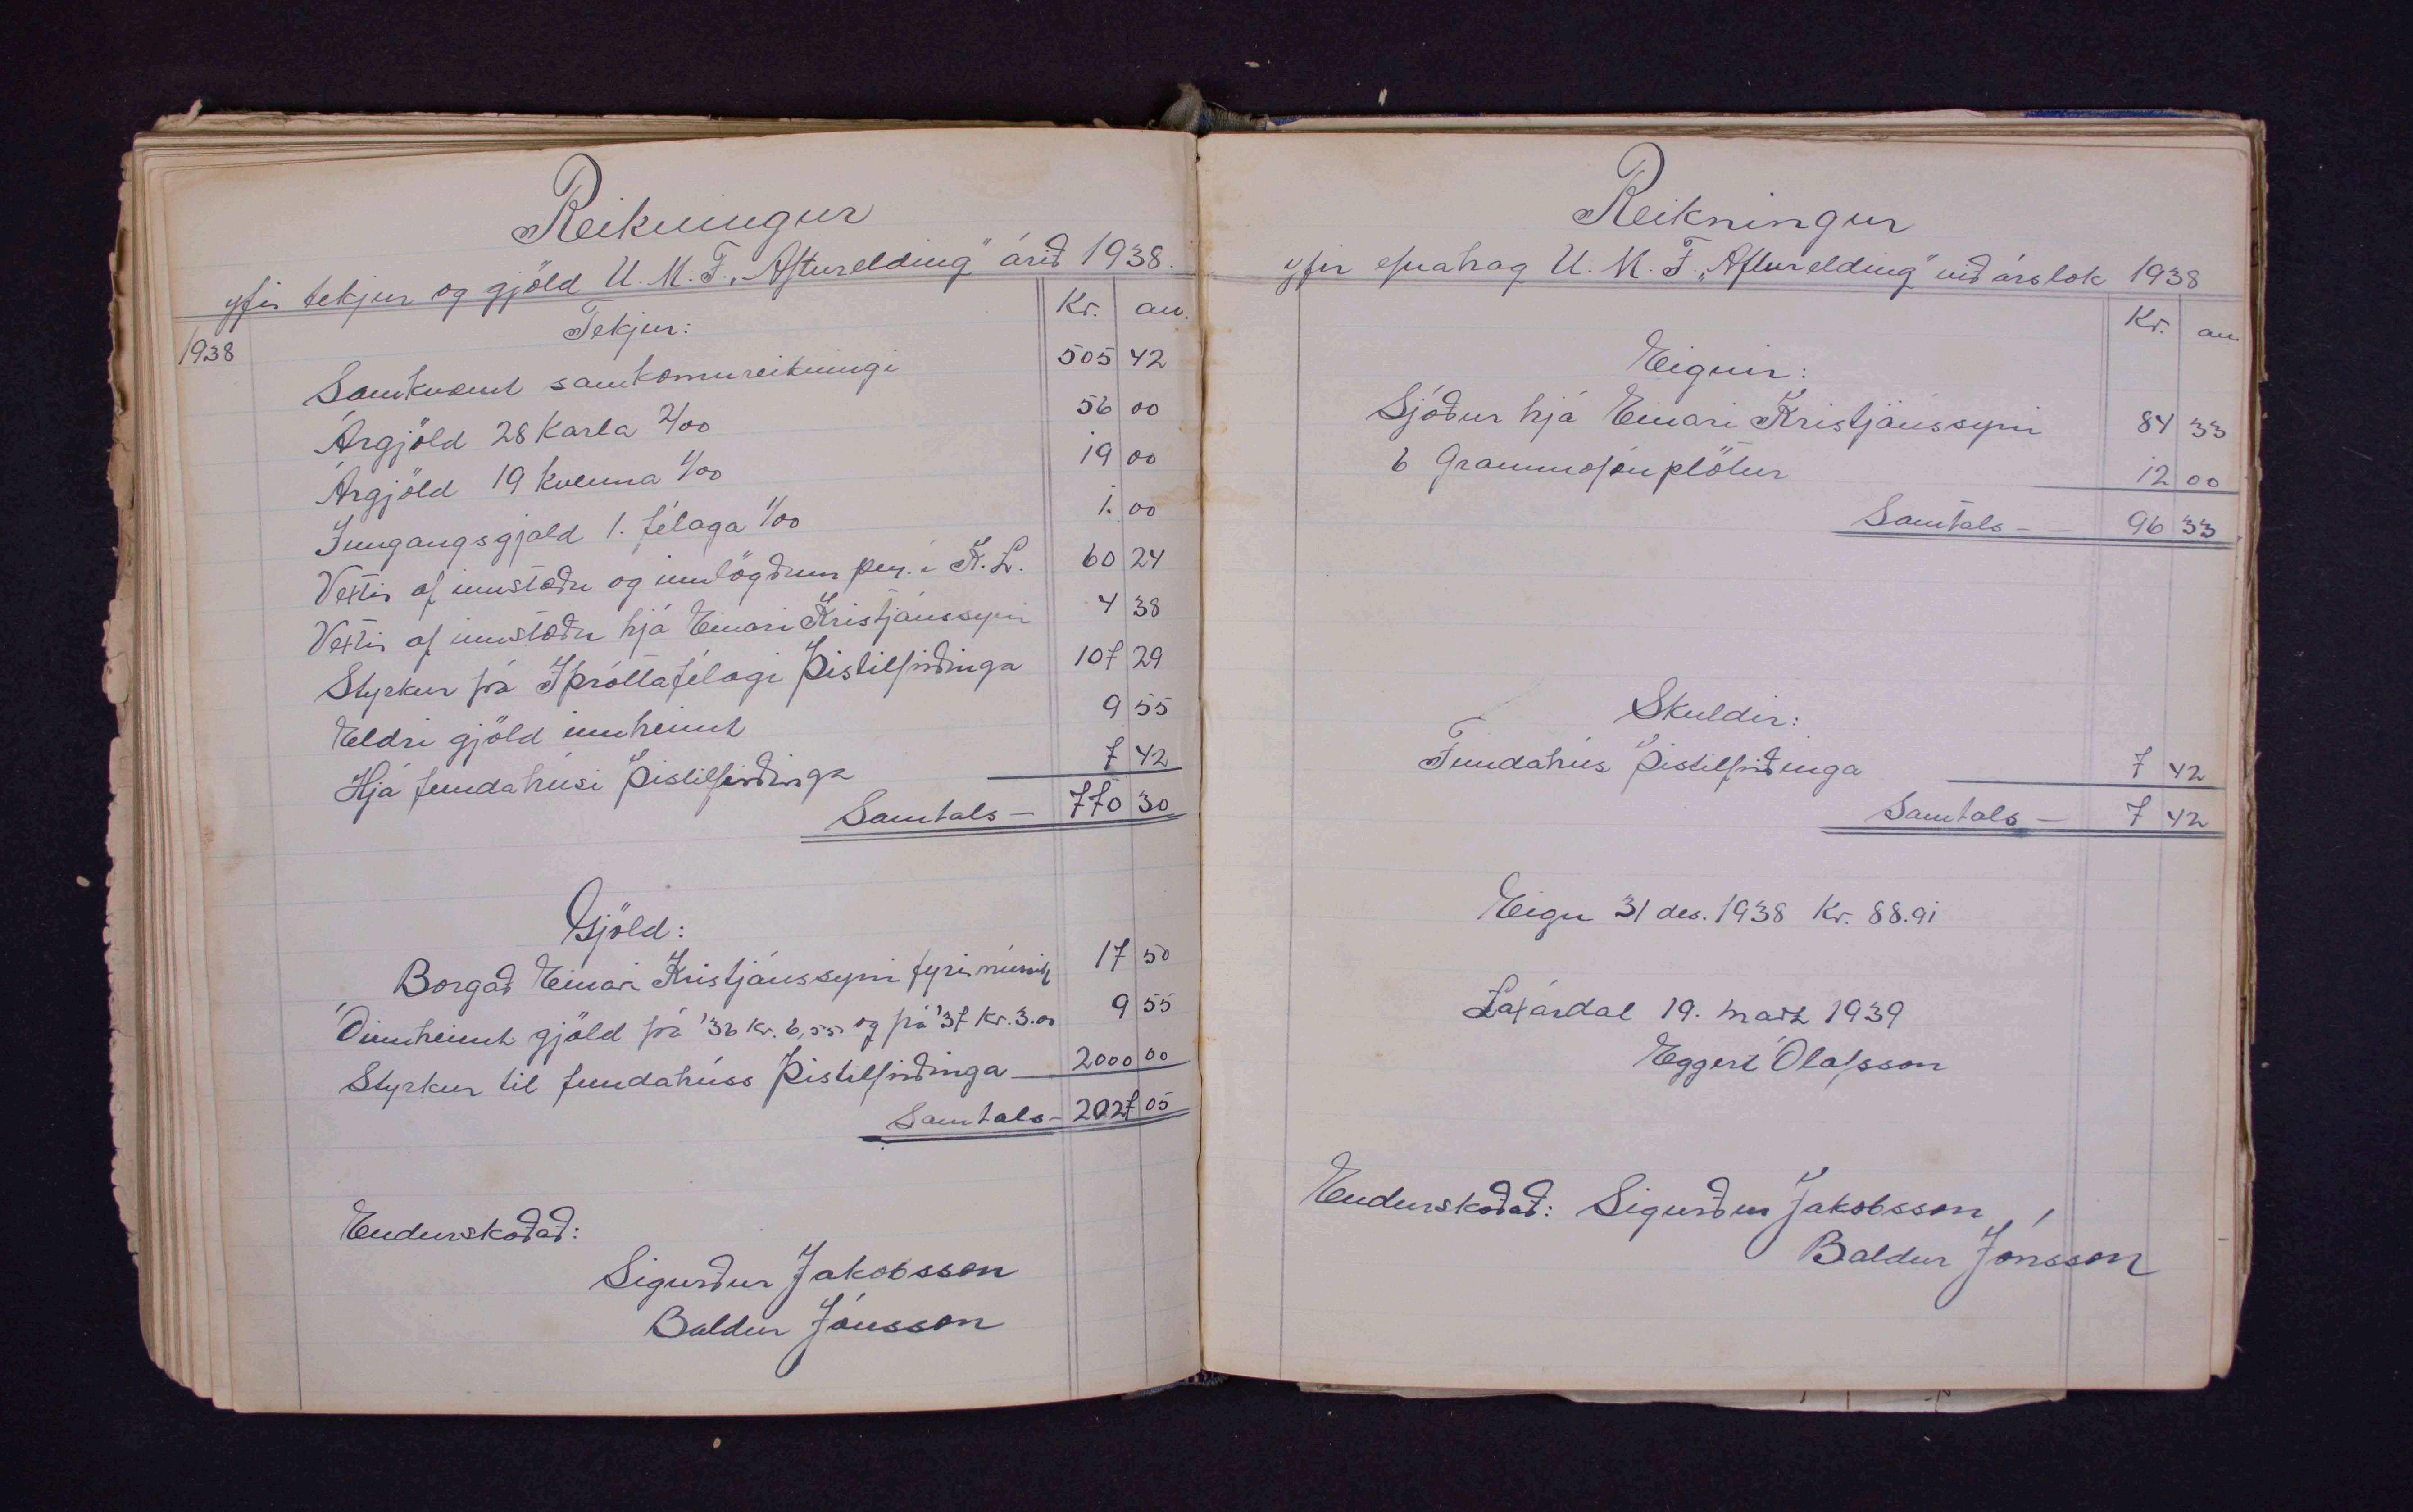 Reikningur
yfir tekjur og gjöld U. M. F. „Afturelding" árið 1938.
Kr. au.
1938 Tekjur:
Samkvæmt samkomureikningi 505 42
Árgjöld 28 karla 2/00 56 00
Árgjöld 19 kvenna 1/00 19 00
Inngangsgjald 1. félaga 1/00 1. 00
Vextir af innstæðu og innlögðum pen. í K. L. 60 24
Vextir af innstæðu hjá Einari Kristjánssyni 4 38
Styrkur frá Íþróttafélagi Þistilfirðinga 107 29
Eldri gjöld innheimt 9 55
Hjá fundahúsi Þistilfirðinga 7 42
Samtals – 770 30
Gjöld:
Borgað Einari Kristjánssyni fyrir músik 17 50
Óinnheimt gjöld frá '36 kr. 6,55 og frá '37 kr. 3.00 9 55
Styrkur til fundahúss Þistilfirðinga 2000 00
Samtals – 2027 05
Endurskoðað:
Sigurður Jakobsson
Baldur Jónsson
Reikningur
yfir efnahag U. M. F. „Afturelding" við árslok 1938
Kr. au.
Eignir:
Sjóður hjá Einari Kristjánssyni 84 33
6 Grammofónplötur 12 00
Samtals – 96 33
Skuldir:
Fundahús Þistilfirðinga 7 42
Samtals – 7 42
Eign 31 des. 1938 Kr. 88.91
Laxárdal 19. marz 1939
Eggert Ólafsson
Endurskoðað: Sigurður Jakobsson
Baldur Jónsson